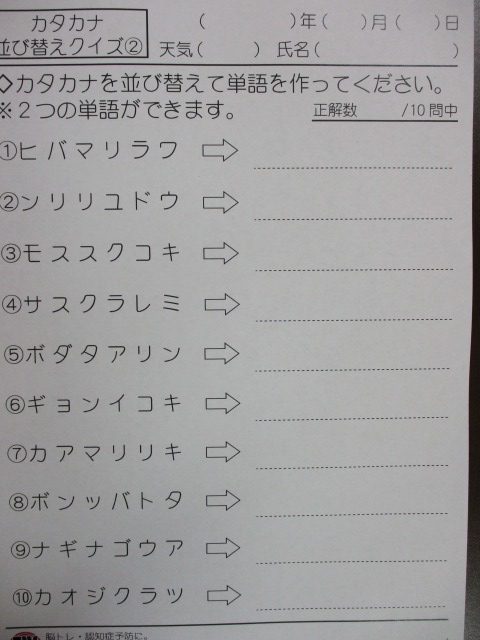 カタカナ
並び替えクイズ②
(　　　)年(　　)月(　　)日
天気(　　　)　氏名(　　　　　　)
◇カタカナを並び替えて単語を作ってください。
※２つの単語ができます。
正解数　　/10問中
①ヒバマリラワ ⇨
②ンリリユドウ ⇨
③モススクコキ ⇨
④サスクラレミ ⇨
⑤ボダタアリン ⇨
⑥ギョンイコキ ⇨
⑦カアマリリキ ⇨
⑧ボンッバトタ ⇨
⑨ナギナゴウア ⇨
⑩カオジクラツ ⇨
脳トレ・認知症予防に。